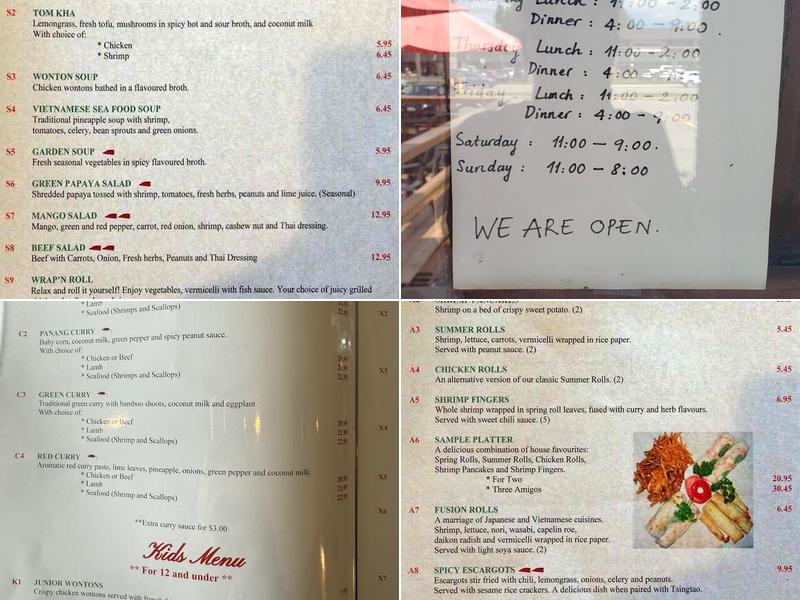 S2 TOM KHA
Lemongrass, fresh tofu, mushrooms in spicy hot and sour broth, and coconut milk
With choice of:
* Chicken 5.95
* Shrimp 6.45
S3 WONTON SOUP 6.45
Chicken wontons bathed in a flavoured broth.
S4 VIETNAMESE SEA FOOD SOUP 6.45
Traditional pineapple soup with shrimp,
tomatoes, celery, bean sprouts and green onions.
S5 GARDEN SOUP 5.95
Fresh seasonal vegetables in spicy flavoured broth.
S6 GREEN PAPAYA SALAD 9.95
Shredded papaya tossed with shrimp, tomatoes, fresh herbs, peanuts and lime juice. (Seasonal)
S7 MANGO SALAD 12.95
Mango, green and red pepper, carrot, red onion, shrimp, cashew nut and Thai dressing.
S8 BEEF SALAD 12.95
Beef with Carrots, Onion, Fresh herbs, Peanuts and Thai Dressing
S9 WRAP'N ROLL
Relax and roll it yourself! Enjoy vegetables, vermicelli with fish sauce. Your choice of juicy grilled
Lunch : 11:00 - 2:00
Dinner : 4:00 - 9:00.
Thursday Lunch : 11:00 - 2:00
Dinner : 4:00
Friday Lunch : 11:00 - 2:00
Dinner : 4:00 - 9:00
Saturday : 11:00 - 9:00.
Sunday : 11:00 - 8:00
WE ARE OPEN.
* Lamb
* Seafood (Shrimps and Scallops) 22.95
C2 PANANG CURRY
Baby corn, coconut milk, green pepper and spicy peanut sauce.
With choice of:
* Chicken or Beef 20.95
* Lamb 21.95
* Seafood (Shrimps and Scallops) 22.95
C3 GREEN CURRY
Traditional green curry with bamboo shoots, coconut milk and eggplant.
With choice of:
* Chicken or Beef 20.95
* Lamb 21.95
* Seafood (Shrimp and Scallops) 22.95
C4 RED CURRY
Aromatic red curry paste, lime leaves, pineapple, onions, green pepper and coconut milk.
* Chicken or Beef 20.95
* Lamb 21.95
* Seafood (Shrimp and Scallops) 22.95
**Extra curry sauce for $3.00
Kids Menu
** For 12 and under **
K1 JUNIOR WONTONS
Crispy chicken wontons served with
X2
X3
X4
X5
X6
X7
SHRIMP PANCAKES
Shrimp on a bed of crispy sweet potato. (2)
A3 SUMMER ROLLS 5.45
Shrimp, lettuce, carrots, vermicelli wrapped in rice paper.
Served with peanut sauce. (2)
A4 CHICKEN ROLLS 5.45
An alternative version of our classic Summer Rolls. (2)
A5 SHRIMP FINGERS 6.95
Whole shrimp wrapped in spring roll leaves, fused with curry and herb flavours.
Served with sweet chili sauce. (5)
A6 SAMPLE PLATTER
A delicious combination of house favourites:
Spring Rolls, Summer Rolls, Chicken Rolls,
Shrimp Pancakes and Shrimp Fingers.
* For Two 20.95
* Three Amigos 30.45
A7 FUSION ROLLS 6.45
A marriage of Japanese and Vietnamese cuisines.
Shrimp, lettuce, nori, wasabi, capelin roe,
daikon radish and vermicelli wrapped in rice paper.
Served with light soya sauce. (2)
A8 SPICY ESCARGOTS 9.95
Escargots stir fried with chili, lemongrass, onions, celery and peanuts.
Served with sesame rice crackers. A delicious dish when paired with Tsingtao.